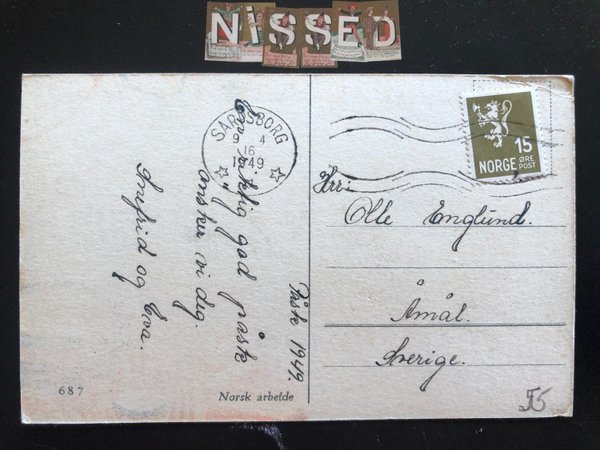 NiSSED
SARPSBORG
9 4
16
1949
15
NORGE ØRE
POST
Påske 1949.
En riktig god påske
ønsker vi dig.
Anfrid og Eva.
Hrr:
Olle Englund.
Åmål.
Sverige.
687
Norsk arbeide
55